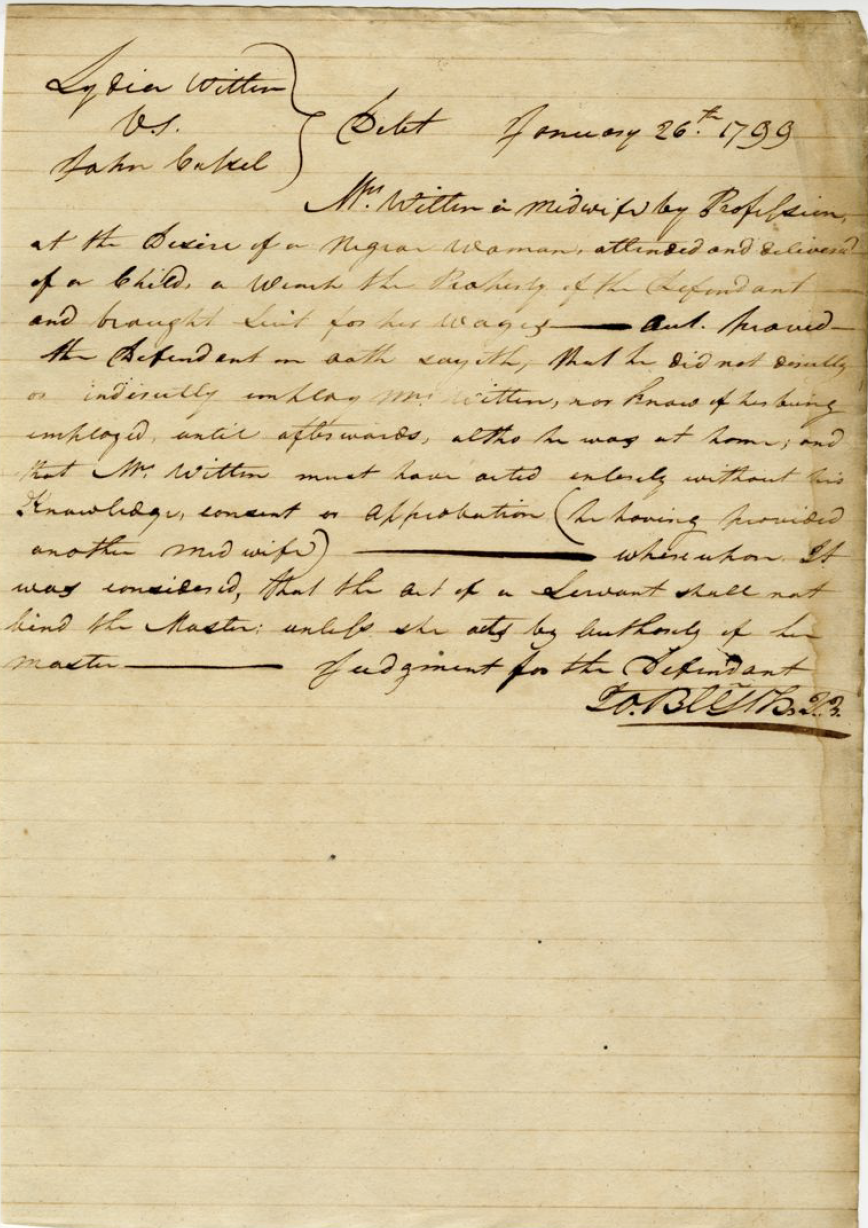 Lydia Witten
vs.
John
Debt January 26.th 1799
Mrs. Witten a Midwife by Profession,
at the Desire of a Negroe Woman, attended and delivered
of a Child, a Wench the Property of the Defendant —
and brought Suit for her Wages — Act. proved —
the Defendant on oath sayeth, that he did not directly
or indirectly employ Mrs. Witten, nor Know of her being
employed, until afterwards, altho he was at home; and
that Mrs. Witten must have acted entirely without his
Knowledge, consent or Approbation (he having provided
another midwife) — whereupon It
was considered, that the act of a Servant shall not
bind the Master: unless she acts by Authority of her
master — Judgment for the Defendant